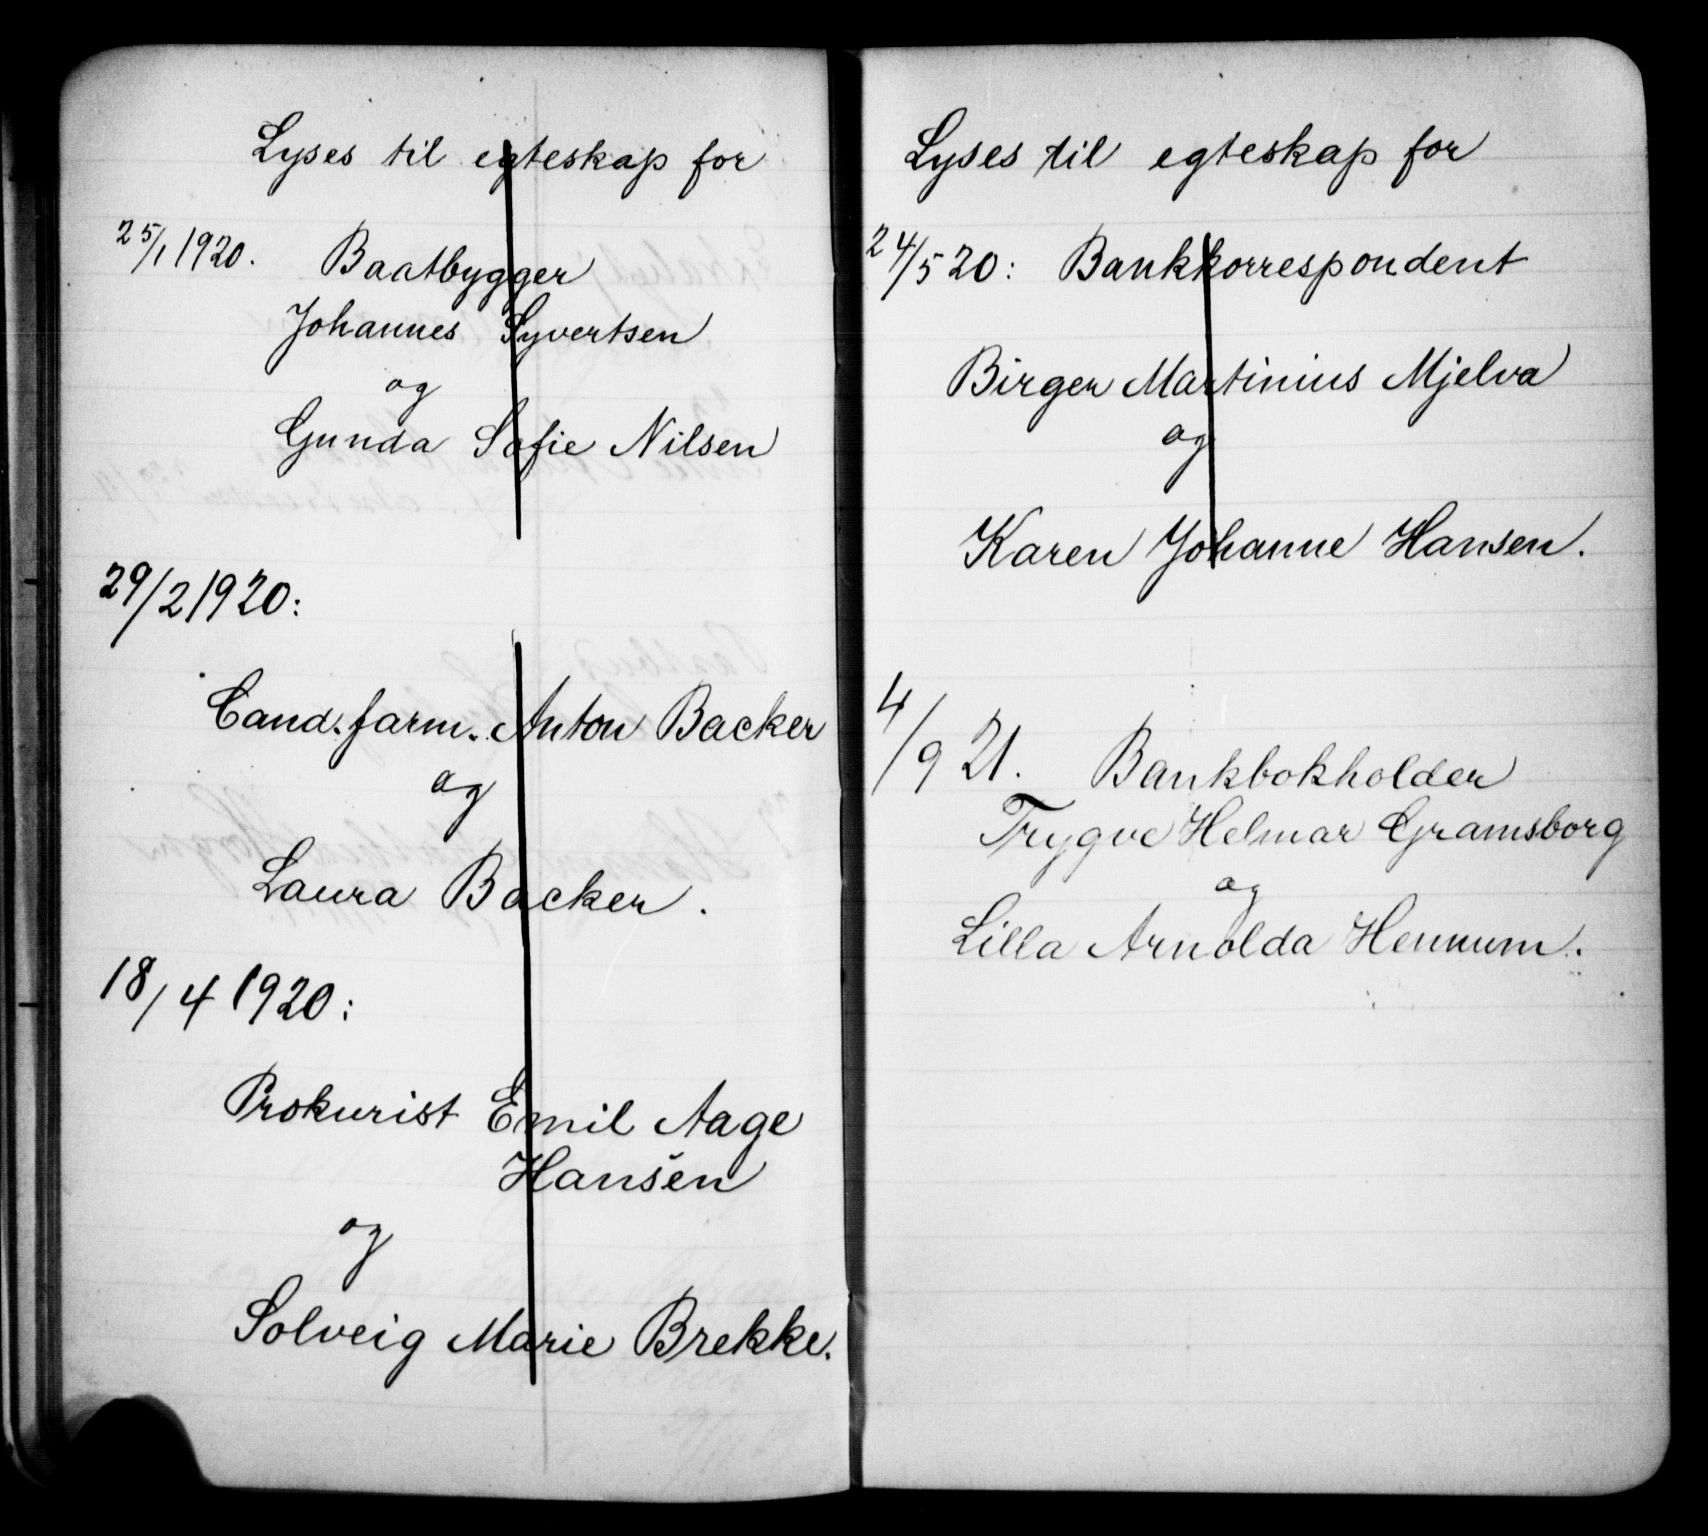 Lyses til egteskap for
25/1 1920. Baatbygger
Johannes Syvertsen
og
Gunda Sofie Nilsen
29/2 1920:
Cand. farm. Anton Backer
og
Laura Backer.
18/4 1920:
Prokurist Emil Aage
Hansen
og
Solveig Marie Brekke.
Lyses til egteskap for
24/5 20: Bankkorrespondent
Birger Martinius Mjelva
og
Karen Johanne Hansen.
4/9 21. Bankbokholder
Trygve Helmar Gramsborg
og
Lilla Arnolda Hennum.